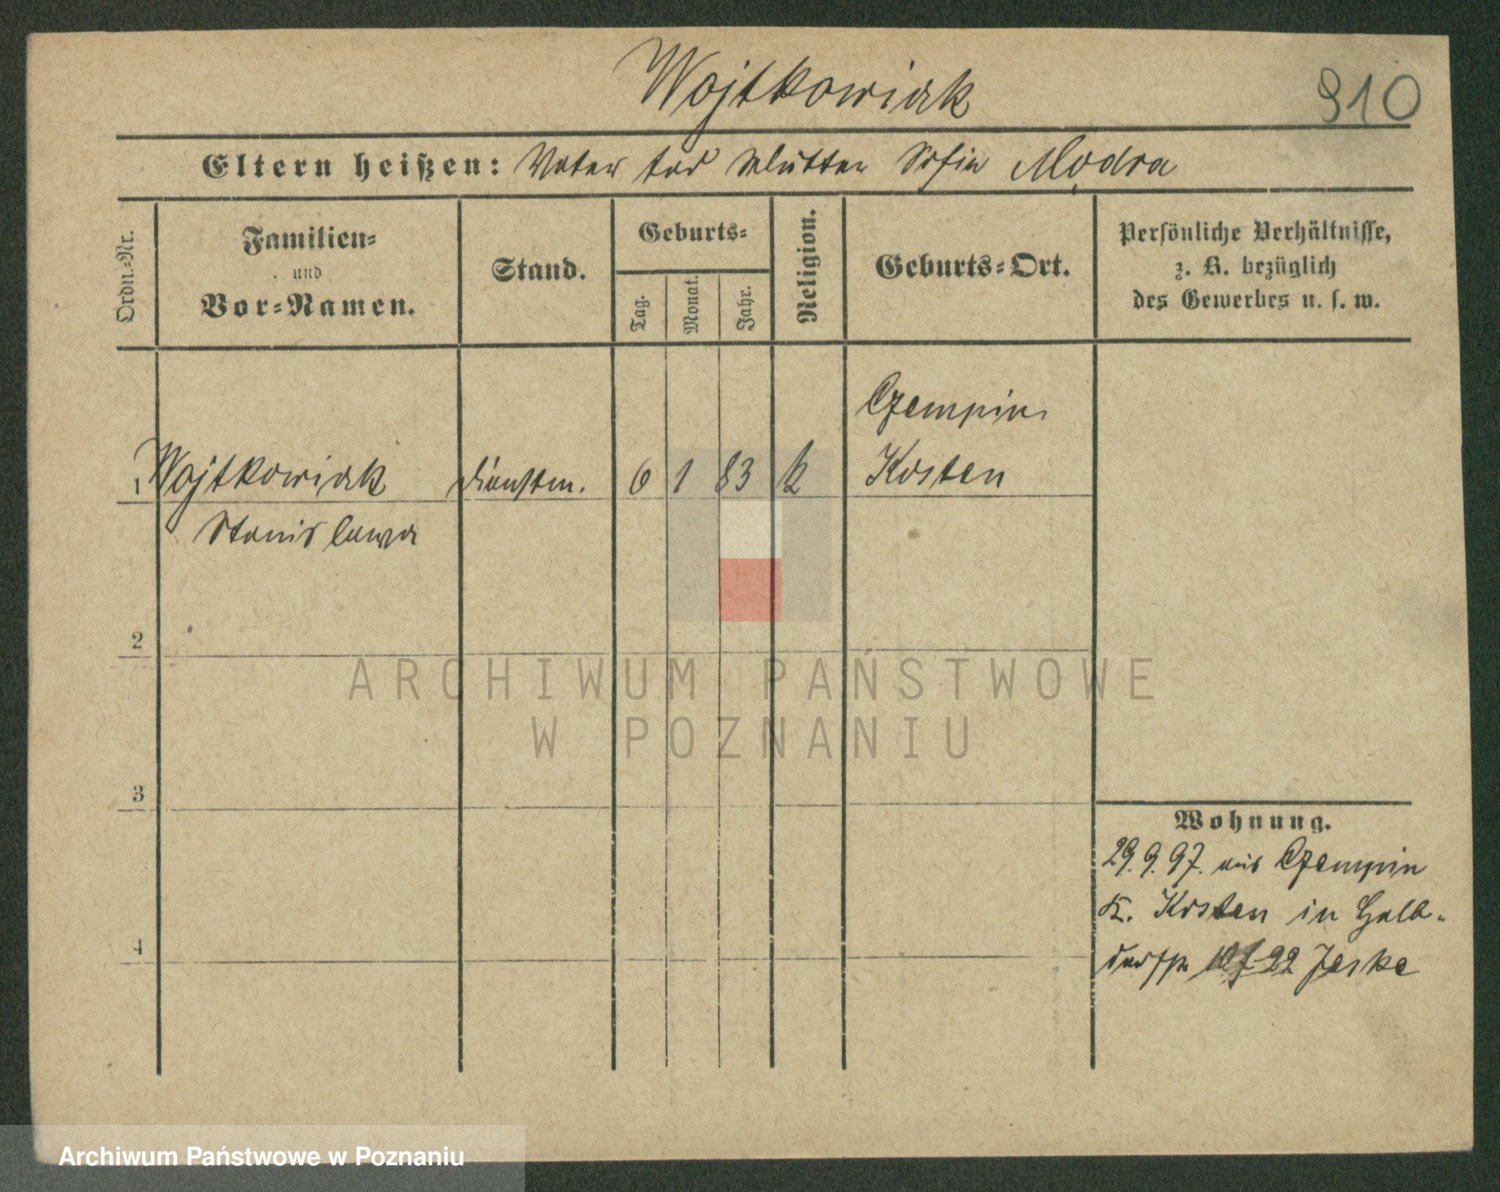 Wojtkowiak
910
Eltern heißen: Vater tod Mutter Sofia Modra
Ordn.-Nr.
Familien-
und
Vor-Namen.
Stand.
Geburts-
Tag.
Monat.
Jahr.
Religion.
Geburts-Ort.
Persönliche Verhältnisse,
z. B. bezüglich
des Gewerbes u. s. w.
Czempin
1 Wojtkowiak dienstm. 6 1 83 k Kosten
Stanislawa
2
3
4
Wohnung.
29.9.97. aus Czempin
K. Kosten in Halb-
dorfstr 22 Jeske
ARCHIWUM PAŃSTWOWE
W POZNANIU
Archiwum Państwowe w Poznaniu